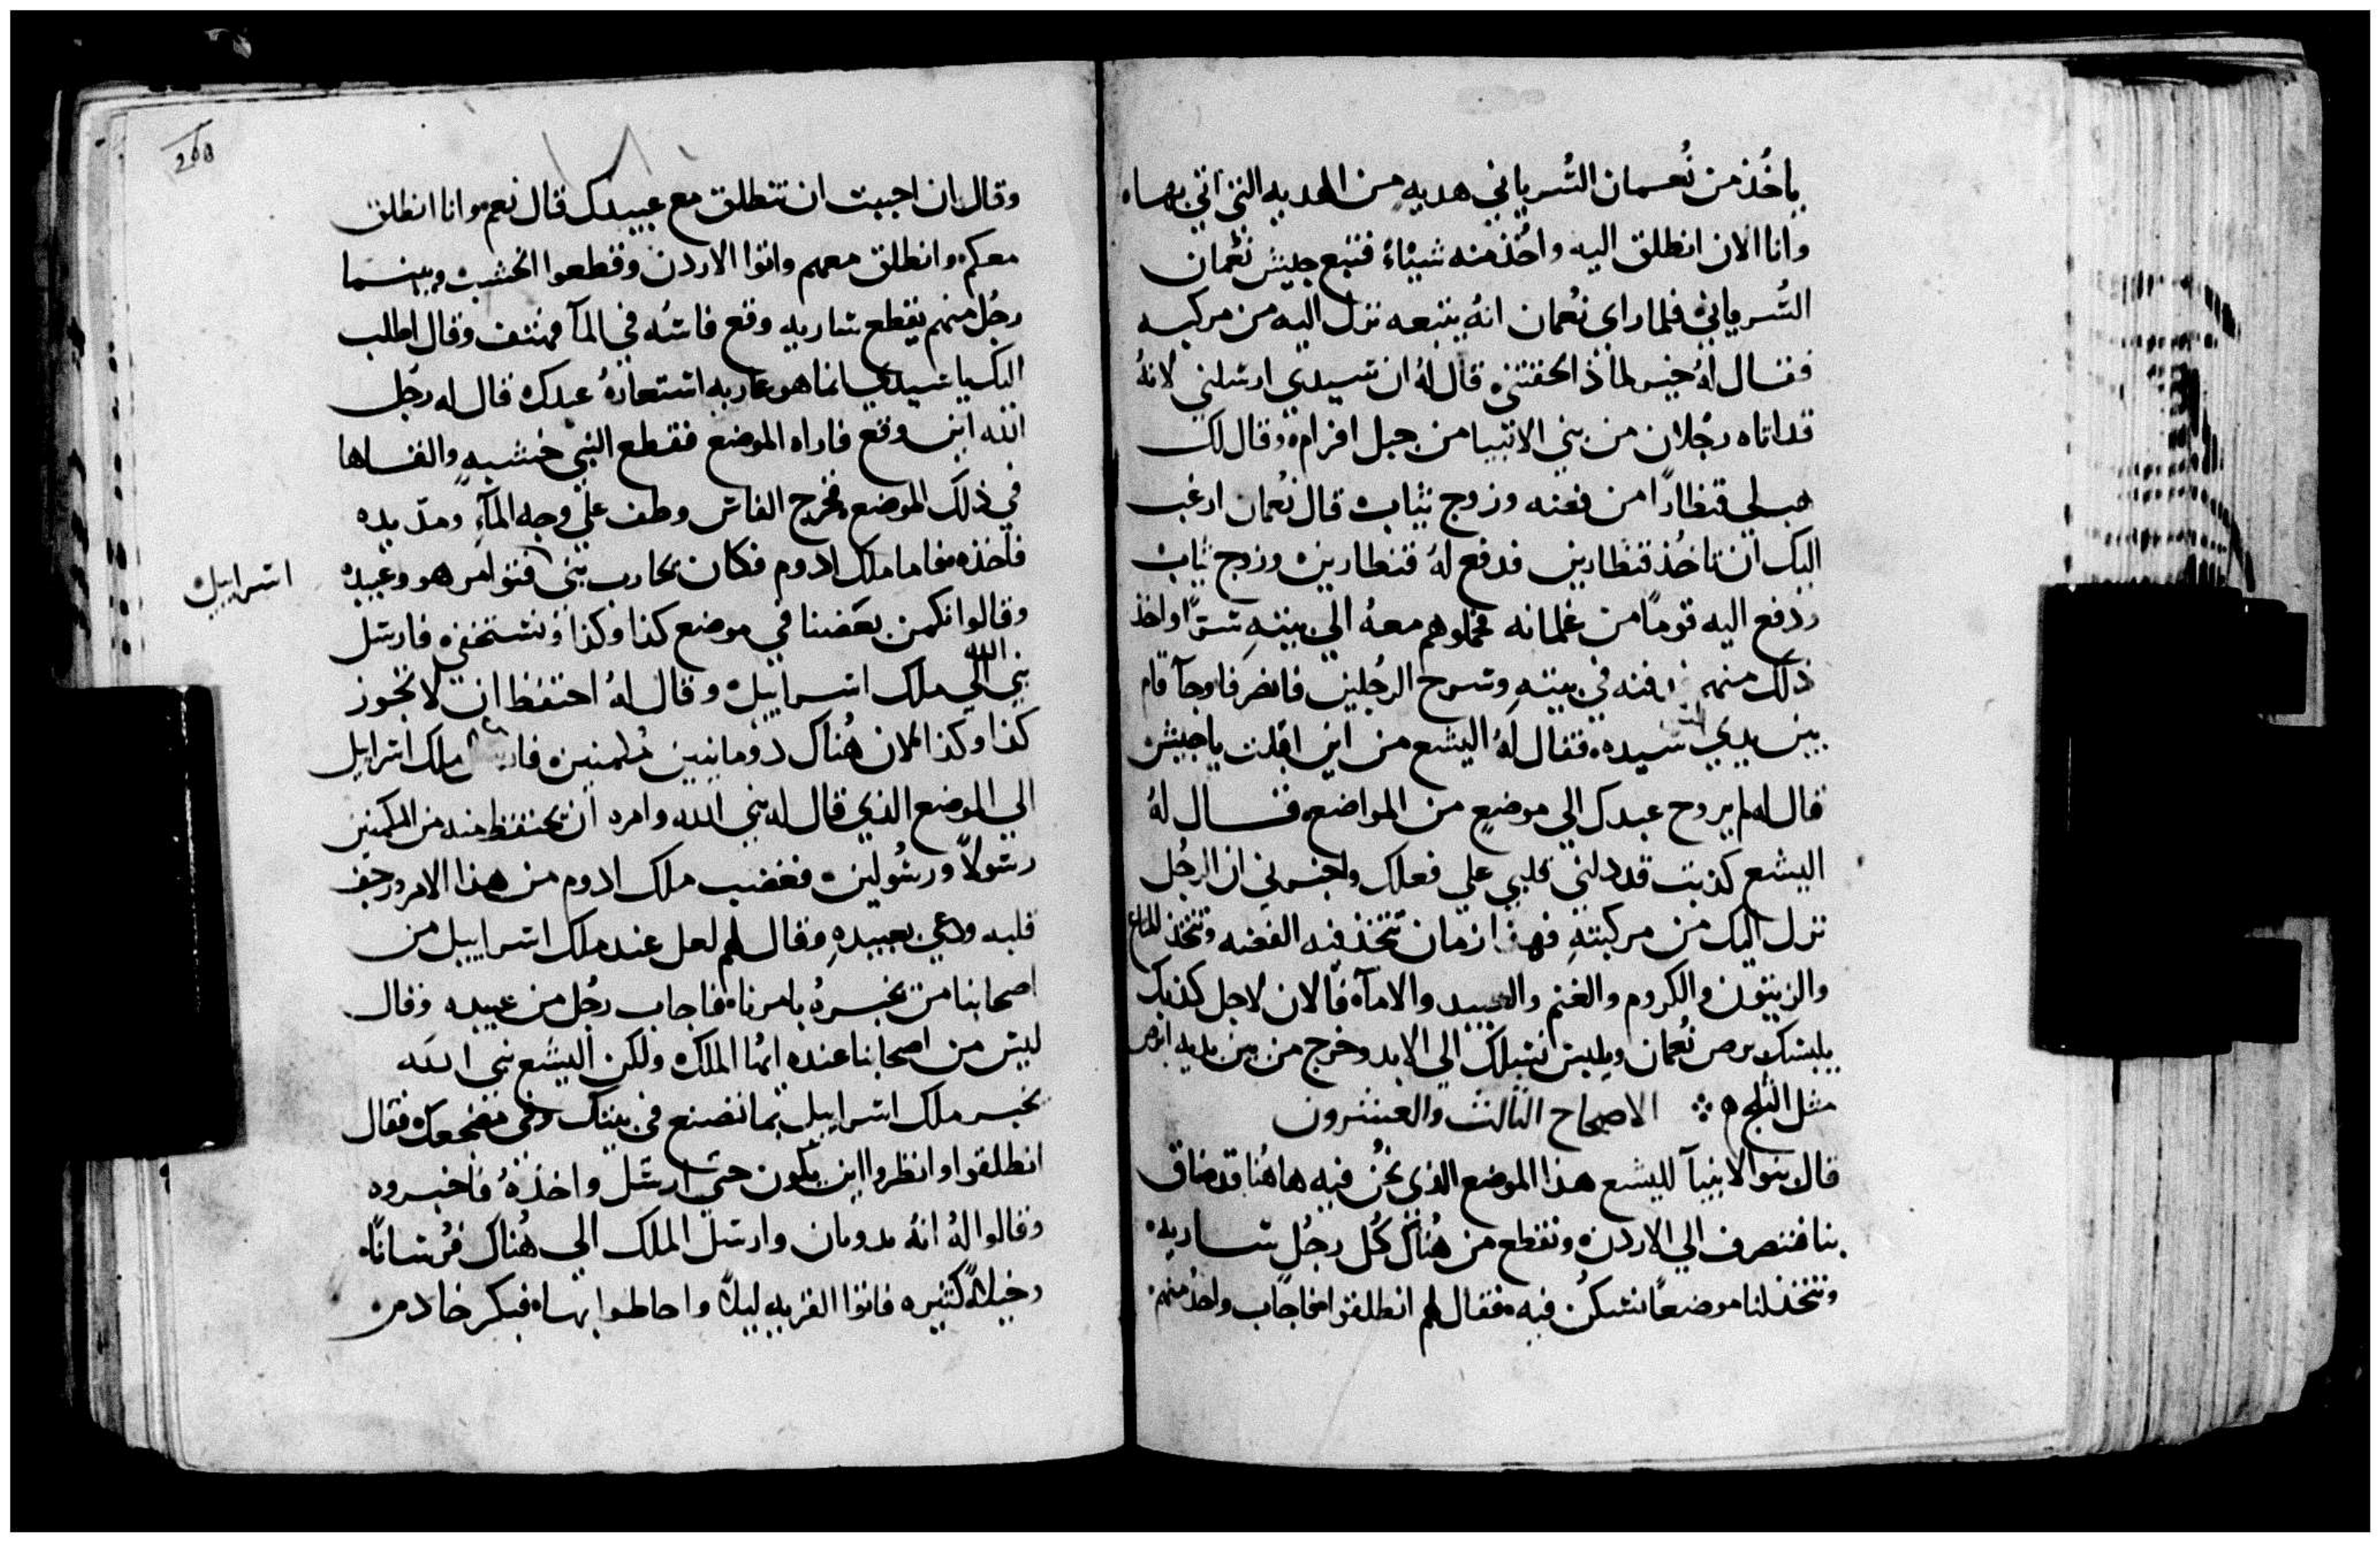 ياخُذ من نُعمان السُرياني هديهٍ من الهديه التي اتي بها
وانا الان انطلق اليه واخُذ منه شياءً فتبع جيش نُعمان
السُرياني فلما راي نُعمان انهُ يتبعه نزل اليه من مركبه
فقال لهُ خير لماذا لحقتني قال لهُ ان سيدي ارسلني لانهُ
قد اتاه رجُلان من بني الانبيا من جبل افرام وقال لك
هب لي قنطارًا من فضه وزوج ثياب قال نُعمان ارغب
اليك ان تاخُذ قنطارين فدفع لهُ قنطارين وزوج ثياب
ودفع اليه قومًا من غلمانه فحملوهم معهُ الي بيتهِ سرًا واخذ
ذلك منهم ودفنه في بيتهِ وسرح الرجُلين فانصرفا وجآ قام
بين يدي سيده فقال لهُ اليشع من اين اقبلت ياجيش
قال له لم يروح عبدك الي موضعٍ من المواضع فقال لهُ
اليشع كذبت قد دلني قلبي علي فعلك واخبرني ان الرجُل
نزل اليك من مركبتهِ فهذا زمان تتخذ فيه الفضه وتتخذ المتاع
والزيتون والكروم والغنم والعبيد والامآ فالان لاجل كذبك
يلبسك برص نُعمان ويلبس نسلك الي الابد وخرج من بين يديه ابرص
مثل الثلج الاصحاح الثالث والعشرون
قال بنوا الانبيآ لليشع هذا الموضع الذي نحنُ فيه هاهُنا قد ضاق
بنا فننصرف الي الاردن ونقطع من هُناك كُل رجُل ساريه
ونتخذ لنا موضعًا نسكُن فيه فقال لهم انطلقوا فاجاب واحدُ منهم
وقال ان احببت ان تنطلق مع عبيدك قال نعم وانا انطلق
معكم وانطلق معهم واتوا الاردن وقطعوا الخشب وبينما
رجُل منهم يقطع ساريه وقع فاسُه في المآ فهتف وقال اطلب
اليك ياسيدي انما هو عاريه استعارهُ عبدك قال له رجُل
الله اين وقع فاراه الموضع فقطع النبي خشبهٍ والقاها
في ذلك الموضع فخرج الفاس وطف علي وجه المآءِ ومد يده
فاخذه فاما ملك ادوم فكان يحارب بني فتوامر هو وعبيده
اسراييل
وقالوا نكمن بعضنا في موضع كذا وكذا ونستخفي فارسل
نبي الله الي ملك اسراييل وقال لهُ احتفظ ان لا تجوز
كذا وكذا لان هُناك دومانيين مُكمنين فارسل ملك اسراييل
الي الموضع الذي قال له نبي الله وامره ان يحتفظ منه من المكمنين
رسولاً ورسُولين فغضب ملك ادوم من هذا الامر ورجف
قلبه ودعي بعبيدهِ وقال لهم لعل عند ملك اسراييل من
اصحابنا من يخبرهُ بامرنا فاجاب رجُل من عبيده وقال
ليس من اصحابنا عنده ايها الملك ولكن اليشع نبي الله
يخبر ملك اسراييل بما تصنع في بيتك وفي مضجعك فقال
انطلقوا وانظروا اين يكون حتي ارسل واخذهُ فاخبروه
وقالوا لهُ انهُ بدوثان وارسل الملك الي هُناك فُرسانًا
وخيلاً كثيره فاتوا القريه ليلاً واحاطوا بها فبكر خادم